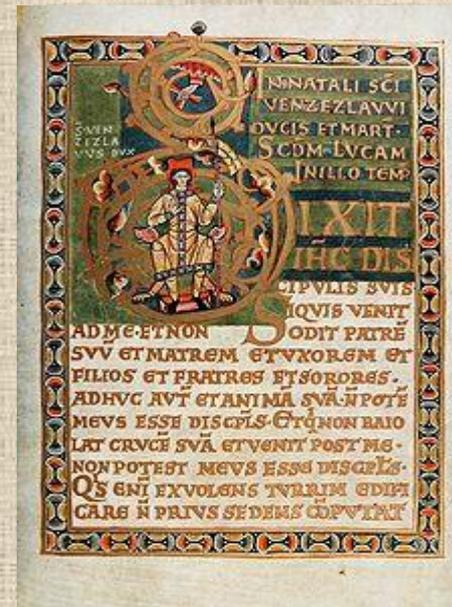 IN NATALI SCI
VENZEZLAVVI
DVCIS ET MART·
SCDM·LVCAM
IN ILLO TEMP
S VEN
ZEZLA
VVS DVX
DIXIT
IHC DIS
CIPVLIS SVIS
SIQVIS VENIT
AD ME·ET NON ODIT PATRE
SVV ET MATREM ET VXOREM ET
FILIOS ET FRATRES ET SORORES.
ADHVC AVT ET ANIMA SVA·N POTE
MEVS ESSE DISCPLS· ET Q NON BAIO
LAT CRVCE SVA ET VENIT POST ME·
NON POTEST MEVS ESSE DISCPLS·
QS ENI EX VOLENS TVRRIM EDIFI
CARE N PRIVS SEDENS COPVTAT